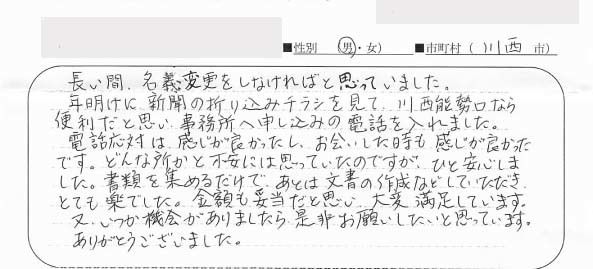 ■性別 (男・女) ■市町村 (川西 市)
長い間、名義変更をしなければと思っていました。
年明けに新聞の折り込みチラシを見て、川西能勢口なら
便利だと思い、事務所へ申し込みの電話を入れました。
電話応対は、感じが良かったし、お会いした時も感じが良かった
です。どんな所かと不安には思っていたのですが、ひと安心しま
した。書類を集めるだけで、あとは文書の作成などしていただき、
とても楽でした。金額も妥当だと思い、大変満足しています。
又、いつか機会がありましたら、是非お願いしたいと思っています。
ありがとうございました。